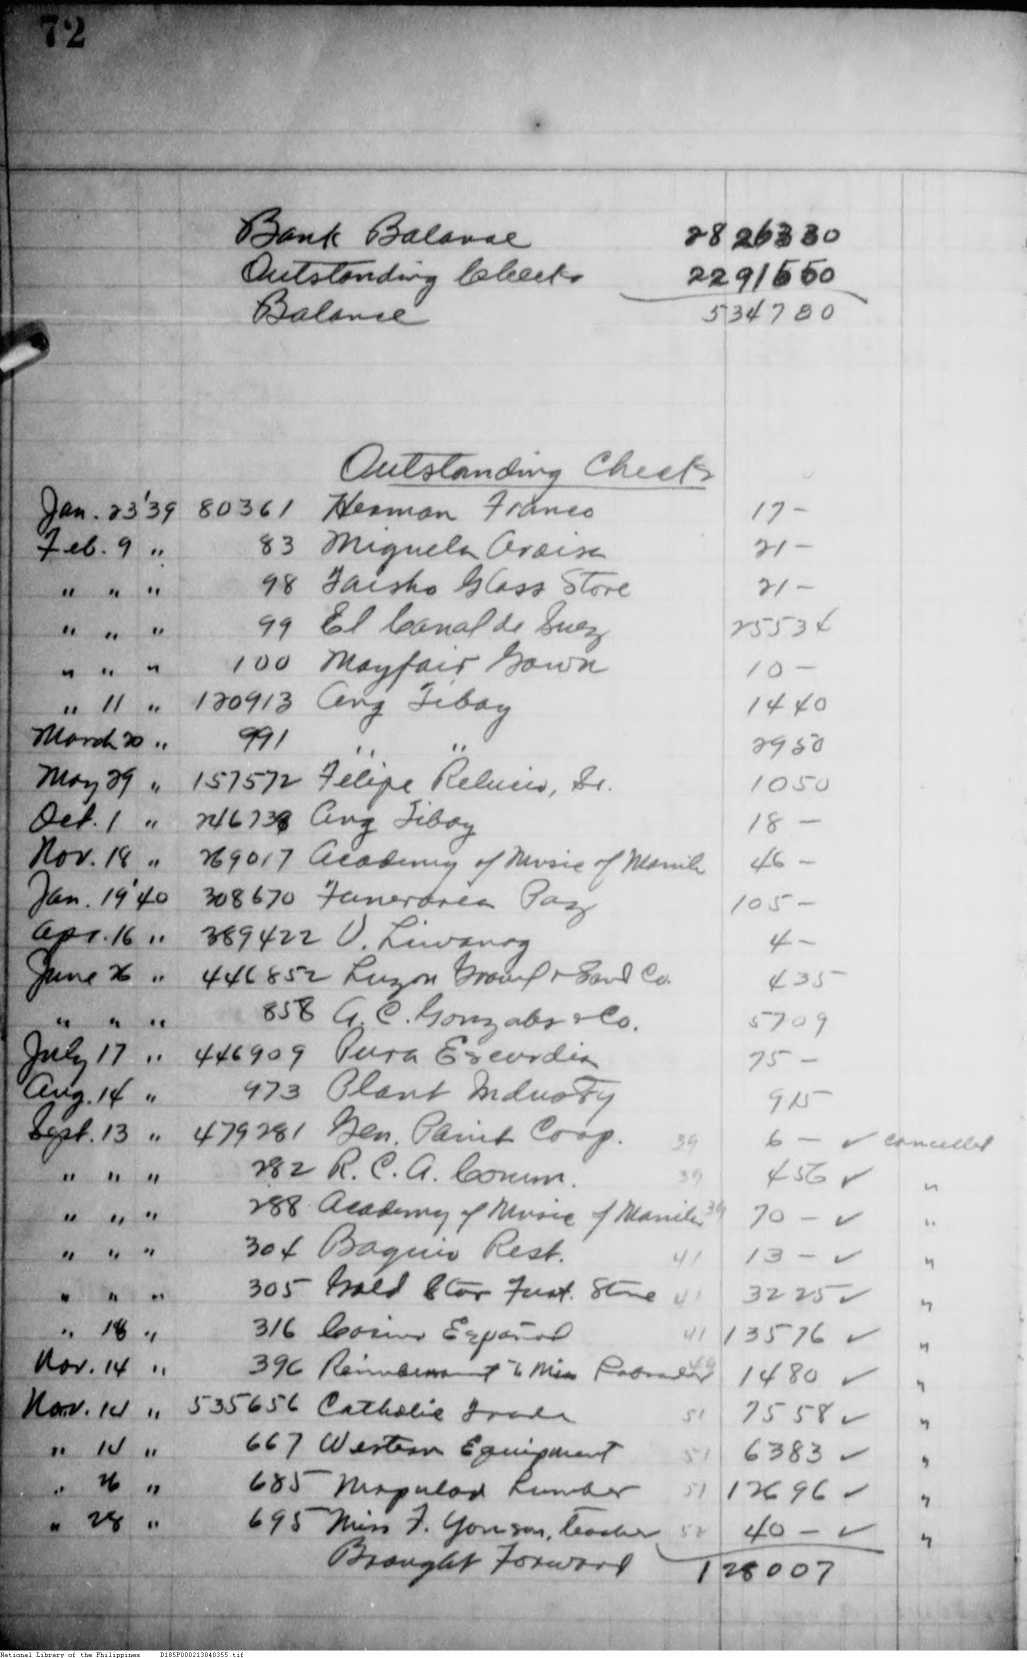 72
Bank Balance 2826330
Outstanding Checks 2291550
Balance 534780
Outstanding Checks
Jan. 23 '39 80361 Herman Franco 17 -
Feb. 9 " 83 Miguela 21 -
" " " 98 Taisho Glass Store 21 -
" " " 99 El Canal de Suez 25534
" " " 100 Mayfair Gown 10 -
" 11 " 120913 Ang Tibay 1440
March 20 " 991 " " 2950
May 29 " 157572 Felipe Relucio, Sr. 1050
Oct. 1 " 246738 Ang Tibay 18 -
Nov. 18 " 269017 Academy of Music of Manila 46 -
Jan. 19 '40 308670 Funeraria Paz 105 -
Apr. 16 " 389422 V. Liwanag 4 -
June 26 " 446852 Luzon Gravel & Sand Co. 435
" " " 858 A. C. Gonzales & Co. 5709
July 17 " 446909 Pura Escurdia 75 -
Aug. 14 " 973 Plant Industry 915
Sept. 13 " 479281 Gen. Paint Corp. 39 6 - ✓ cancelled
" " " 282 R. C. A. Comm. 39 456 ✓ "
" " " 288 Academy of Music of Manila 39 70 - ✓ "
" " " 304 Baguio Rest. 41 13 - ✓ "
" " " 305 Gold Star Furt. Store 41 3225 ✓ "
" 18 " 316 Casino Español 41 13576 ✓ "
Nov. 14 " 396 to Miss 49 1480 ✓ "
Nov. 14 " 535656 Catholic Trade 51 7558 ✓ "
" 14 " 667 Western Equipment 51 6383 ✓ "
" 26 " 685 Mapulad Lumber 51 12696 ✓ "
" 28 " 695 Miss F. Yonson, teacher 52 40 - ✓ "
Brought Forward 128007
National Library of the Philippines D185P000213040355.tif